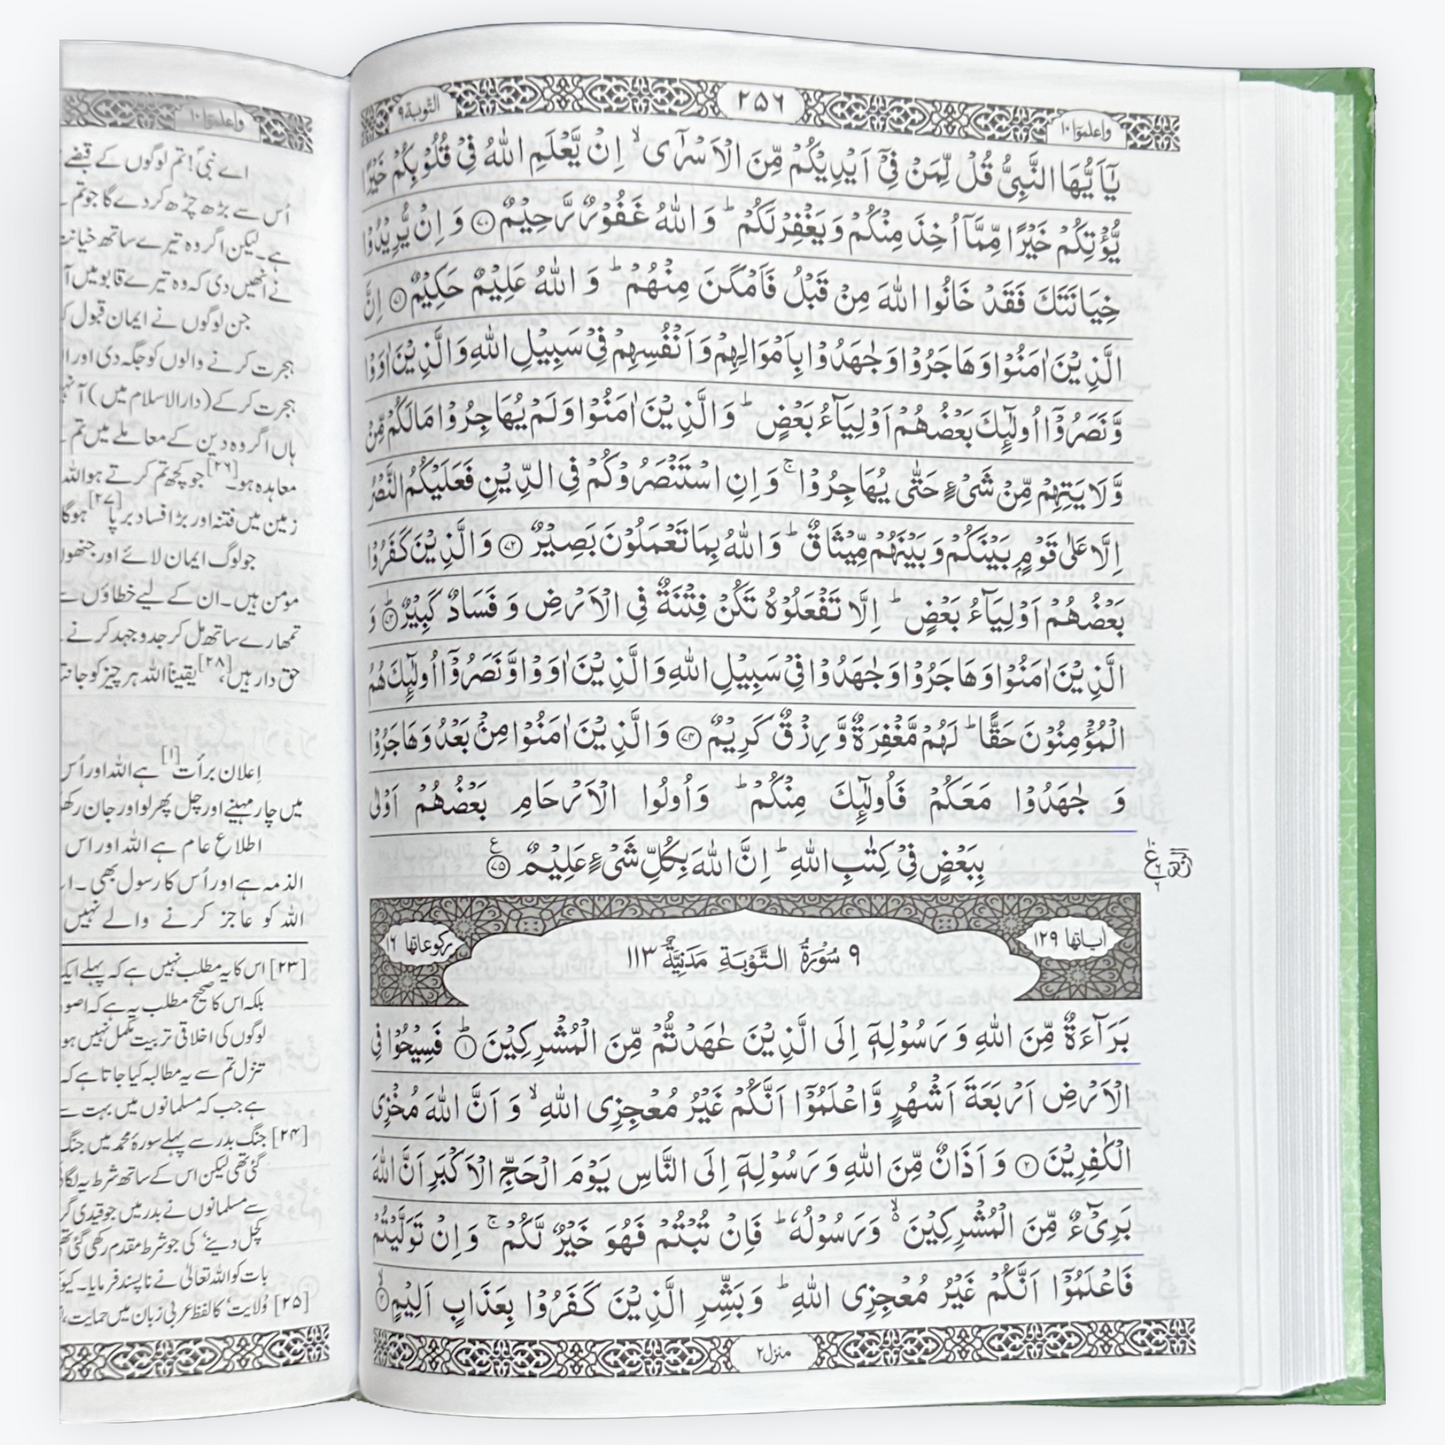 التوبة ٩
٢٥٦
واعلموا ١٠
يٰۤاَيُّهَا النَّبِىُّ قُلْ لِّمَنْ فِىْۤ اَيْدِيْكُمْ مِّنَ الْاَسْرٰٓى ۙ اِنْ يَّعْلَمِ اللّٰهُ فِىْ قُلُوْبِكُمْ خَيْرًا
يُّؤْتِكُمْ خَيْرًا مِّمَّاۤ اُخِذَ مِنْكُمْ وَيَغْفِرْ لَكُمْ ؕ وَ اللّٰهُ غَفُوْرٌ رَّحِيْمٌ ﴿۷۰﴾ وَ اِنْ يُّرِيْدُوْا
خِيَانَتَكَ فَقَدْ خَانُوا اللّٰهَ مِنْ قَبْلُ فَاَمْكَنَ مِنْهُمْ ؕ وَ اللّٰهُ عَلِيْمٌ حَكِيْمٌ ﴿۷۱﴾ اِنَّ
الَّذِيْنَ اٰمَنُوْا وَهَاجَرُوْا وَجٰهَدُوْا بِاَمْوَالِهِمْ وَاَنْفُسِهِمْ فِىْ سَبِيْلِ اللّٰهِ وَالَّذِيْنَ اٰوَوْا
وَّنَصَرُوْۤا اُولٰٓئِكَ بَعْضُهُمْ اَوْلِيَآءُ بَعْضٍ ؕ وَالَّذِيْنَ اٰمَنُوْا وَلَمْ يُهَاجِرُوْا مَا لَكُمْ مِّنْ
وَّلَايَتِهِمْ مِّنْ شَىْءٍ حَتّٰى يُهَاجِرُوْا ۚ وَ اِنِ اسْتَنْصَرُوْكُمْ فِى الدِّيْنِ فَعَلَيْكُمُ النَّصْرُ
اِلَّا عَلٰى قَوْمٍۭ بَيْنَكُمْ وَ بَيْنَهُمْ مِّيْثَاقٌ ؕ وَاللّٰهُ بِمَا تَعْمَلُوْنَ بَصِيْرٌ ﴿۷۲﴾ وَالَّذِيْنَ كَفَرُوْا
بَعْضُهُمْ اَوْلِيَآءُ بَعْضٍ ؕ اِلَّا تَفْعَلُوْهُ تَكُنْ فِتْنَةٌ فِى الْاَرْضِ وَ فَسَادٌ كَبِيْرٌ ﴿۷۳﴾ؕ وَ
الَّذِيْنَ اٰمَنُوْا وَهَاجَرُوْا وَجٰهَدُوْا فِىْ سَبِيْلِ اللّٰهِ وَالَّذِيْنَ اٰوَوْا وَّنَصَرُوْۤا اُولٰٓئِكَ هُمُ
الْمُؤْمِنُوْنَ حَقًّا ؕ لَهُمْ مَّغْفِرَةٌ وَّ رِزْقٌ كَرِيْمٌ ﴿۷۴﴾ وَالَّذِيْنَ اٰمَنُوْا مِنْۢ بَعْدُ وَهَاجَرُوْا
وَ جٰهَدُوْا مَعَكُمْ فَاُولٰٓئِكَ مِنْكُمْ ؕ وَاُولُوا الْاَرْحَامِ بَعْضُهُمْ اَوْلٰى
بِبَعْضٍ فِىْ كِتٰبِ اللّٰهِ ؕ اِنَّ اللّٰهَ بِكُلِّ شَىْءٍ عَلِيْمٌ ﴿۷۵﴾ ع
اٰياتها ١٢٩
٩ سُوْرَةُ التَّوْبَةِ مَدَنِيَّةٌ ١١٣
ركوعاتها ١٦
بَرَآءَةٌ مِّنَ اللّٰهِ وَ رَسُوْلِهٖۤ اِلَى الَّذِيْنَ عٰهَدْتُّمْ مِّنَ الْمُشْرِكِيْنَ ﴿۱﴾ؕ فَسِيْحُوْا فِى
الْاَرْضِ اَرْبَعَةَ اَشْهُرٍ وَّاعْلَمُوْۤا اَنَّكُمْ غَيْرُ مُعْجِزِى اللّٰهِ ۙ وَ اَنَّ اللّٰهَ مُخْزِى
الْكٰفِرِيْنَ ﴿۲﴾ وَ اَذَانٌ مِّنَ اللّٰهِ وَ رَسُوْلِهٖۤ اِلَى النَّاسِ يَوْمَ الْحَجِّ الْاَكْبَرِ اَنَّ اللّٰهَ
بَرِىْٓءٌ مِّنَ الْمُشْرِكِيْنَ ۙ۬ وَ رَسُوْلُهٗ ؕ فَاِنْ تُبْتُمْ فَهُوَ خَيْرٌ لَّكُمْ ۚ وَ اِنْ تَوَلَّيْتُمْ
فَاعْلَمُوْۤا اَنَّكُمْ غَيْرُ مُعْجِزِى اللّٰهِ ؕ وَ بَشِّرِ الَّذِيْنَ كَفَرُوْا بِعَذَابٍ اَلِيْمٍ ﴿۳﴾ۙ
منزل ٢
واعلموا ١٠
اے نبیؐ! تم لوگوں کے قبضے
اُس سے بڑھ چڑھ کر دے گا جو تم
ہے۔ لیکن اگر وہ تیرے ساتھ خیانت
نے اُنھیں دی کہ وہ تیرے قابو میں آ
جن لوگوں نے ایمان قبول
ہجرت کرنے والوں کو جگہ دی اور
ہجرت کر کے (دارالاسلام میں) آ
ہاں اگر وہ دین کے معاملے میں تم
معاہدہ ہو۔[۲۶] جو کچھ تم کرتے ہو اللہ
زمین میں فتنہ اور بڑا فساد برپا [۲۷] ہو گا
جو لوگ ایمان لائے اور
مومن ہیں۔ ان کے لیے خطاؤں
تمھارے ساتھ مل کر جدوجہد کرنے
حق دار ہیں،[۲۸] یقیناً اللہ ہر چیز کو
اِعلان برأت [۱] ہے اللہ اور اُس
میں چار مہینے اور چل پھر لو اور جان
اطلاعِ عام ہے اللہ اور اس
الذمہ ہے اور اُس کا رسول بھی۔
اللہ کو عاجز کرنے والے نہیں
[۲۳] اس کا یہ مطلب نہیں ہے کہ پہلے
بلکہ اس کا صحیح مطلب یہ ہے کہ
لوگوں کی اخلاقی تربیت مکمل نہیں
تنزل تم سے یہ مطالبہ کیا جاتا ہے کہ
ہے جب کہ مسلمانوں میں بہت
[۲۴] جنگ بدر سے پہلے سورۂ محمد میں جنگ
گئی تھی لیکن اس کے ساتھ شرط یہ
سے مسلمانوں نے بدر میں جو قیدی
کچل دینے' کی جو شرط مقدم رکھی گئی
بات کو اللہ تعالیٰ نے ناپسند فرمایا۔
[۲۵] 'ولایت' کا لفظ عربی زبان میں حمایت،